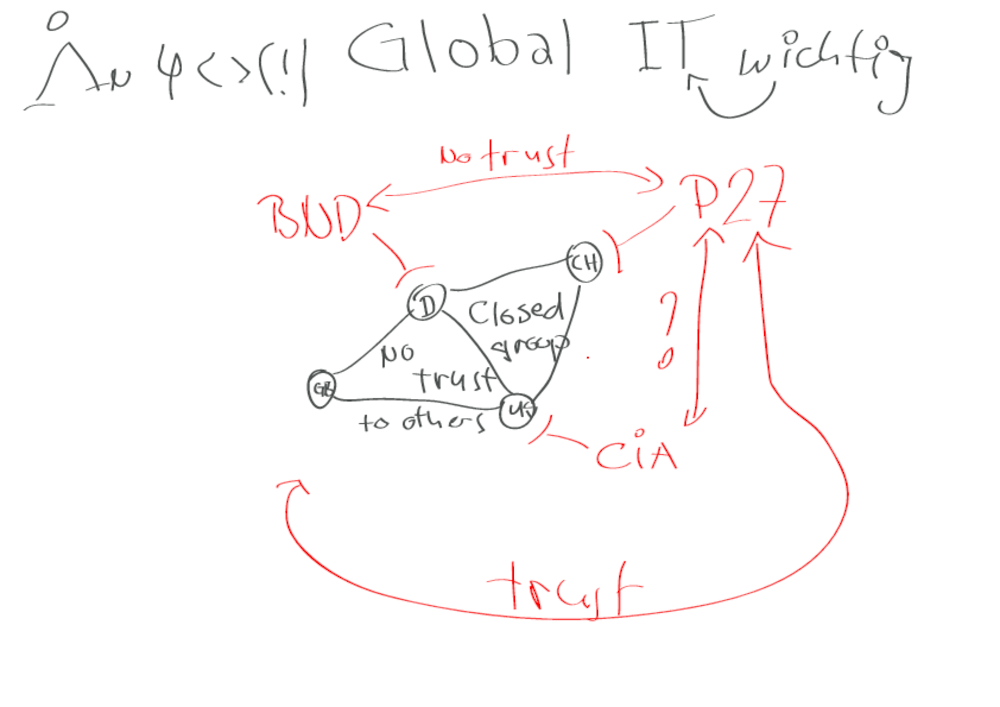 Global IT wichtig
No trust
BND P27
CH
D Closed
group
?
NO
trust
GB
to others US
CIA
trust